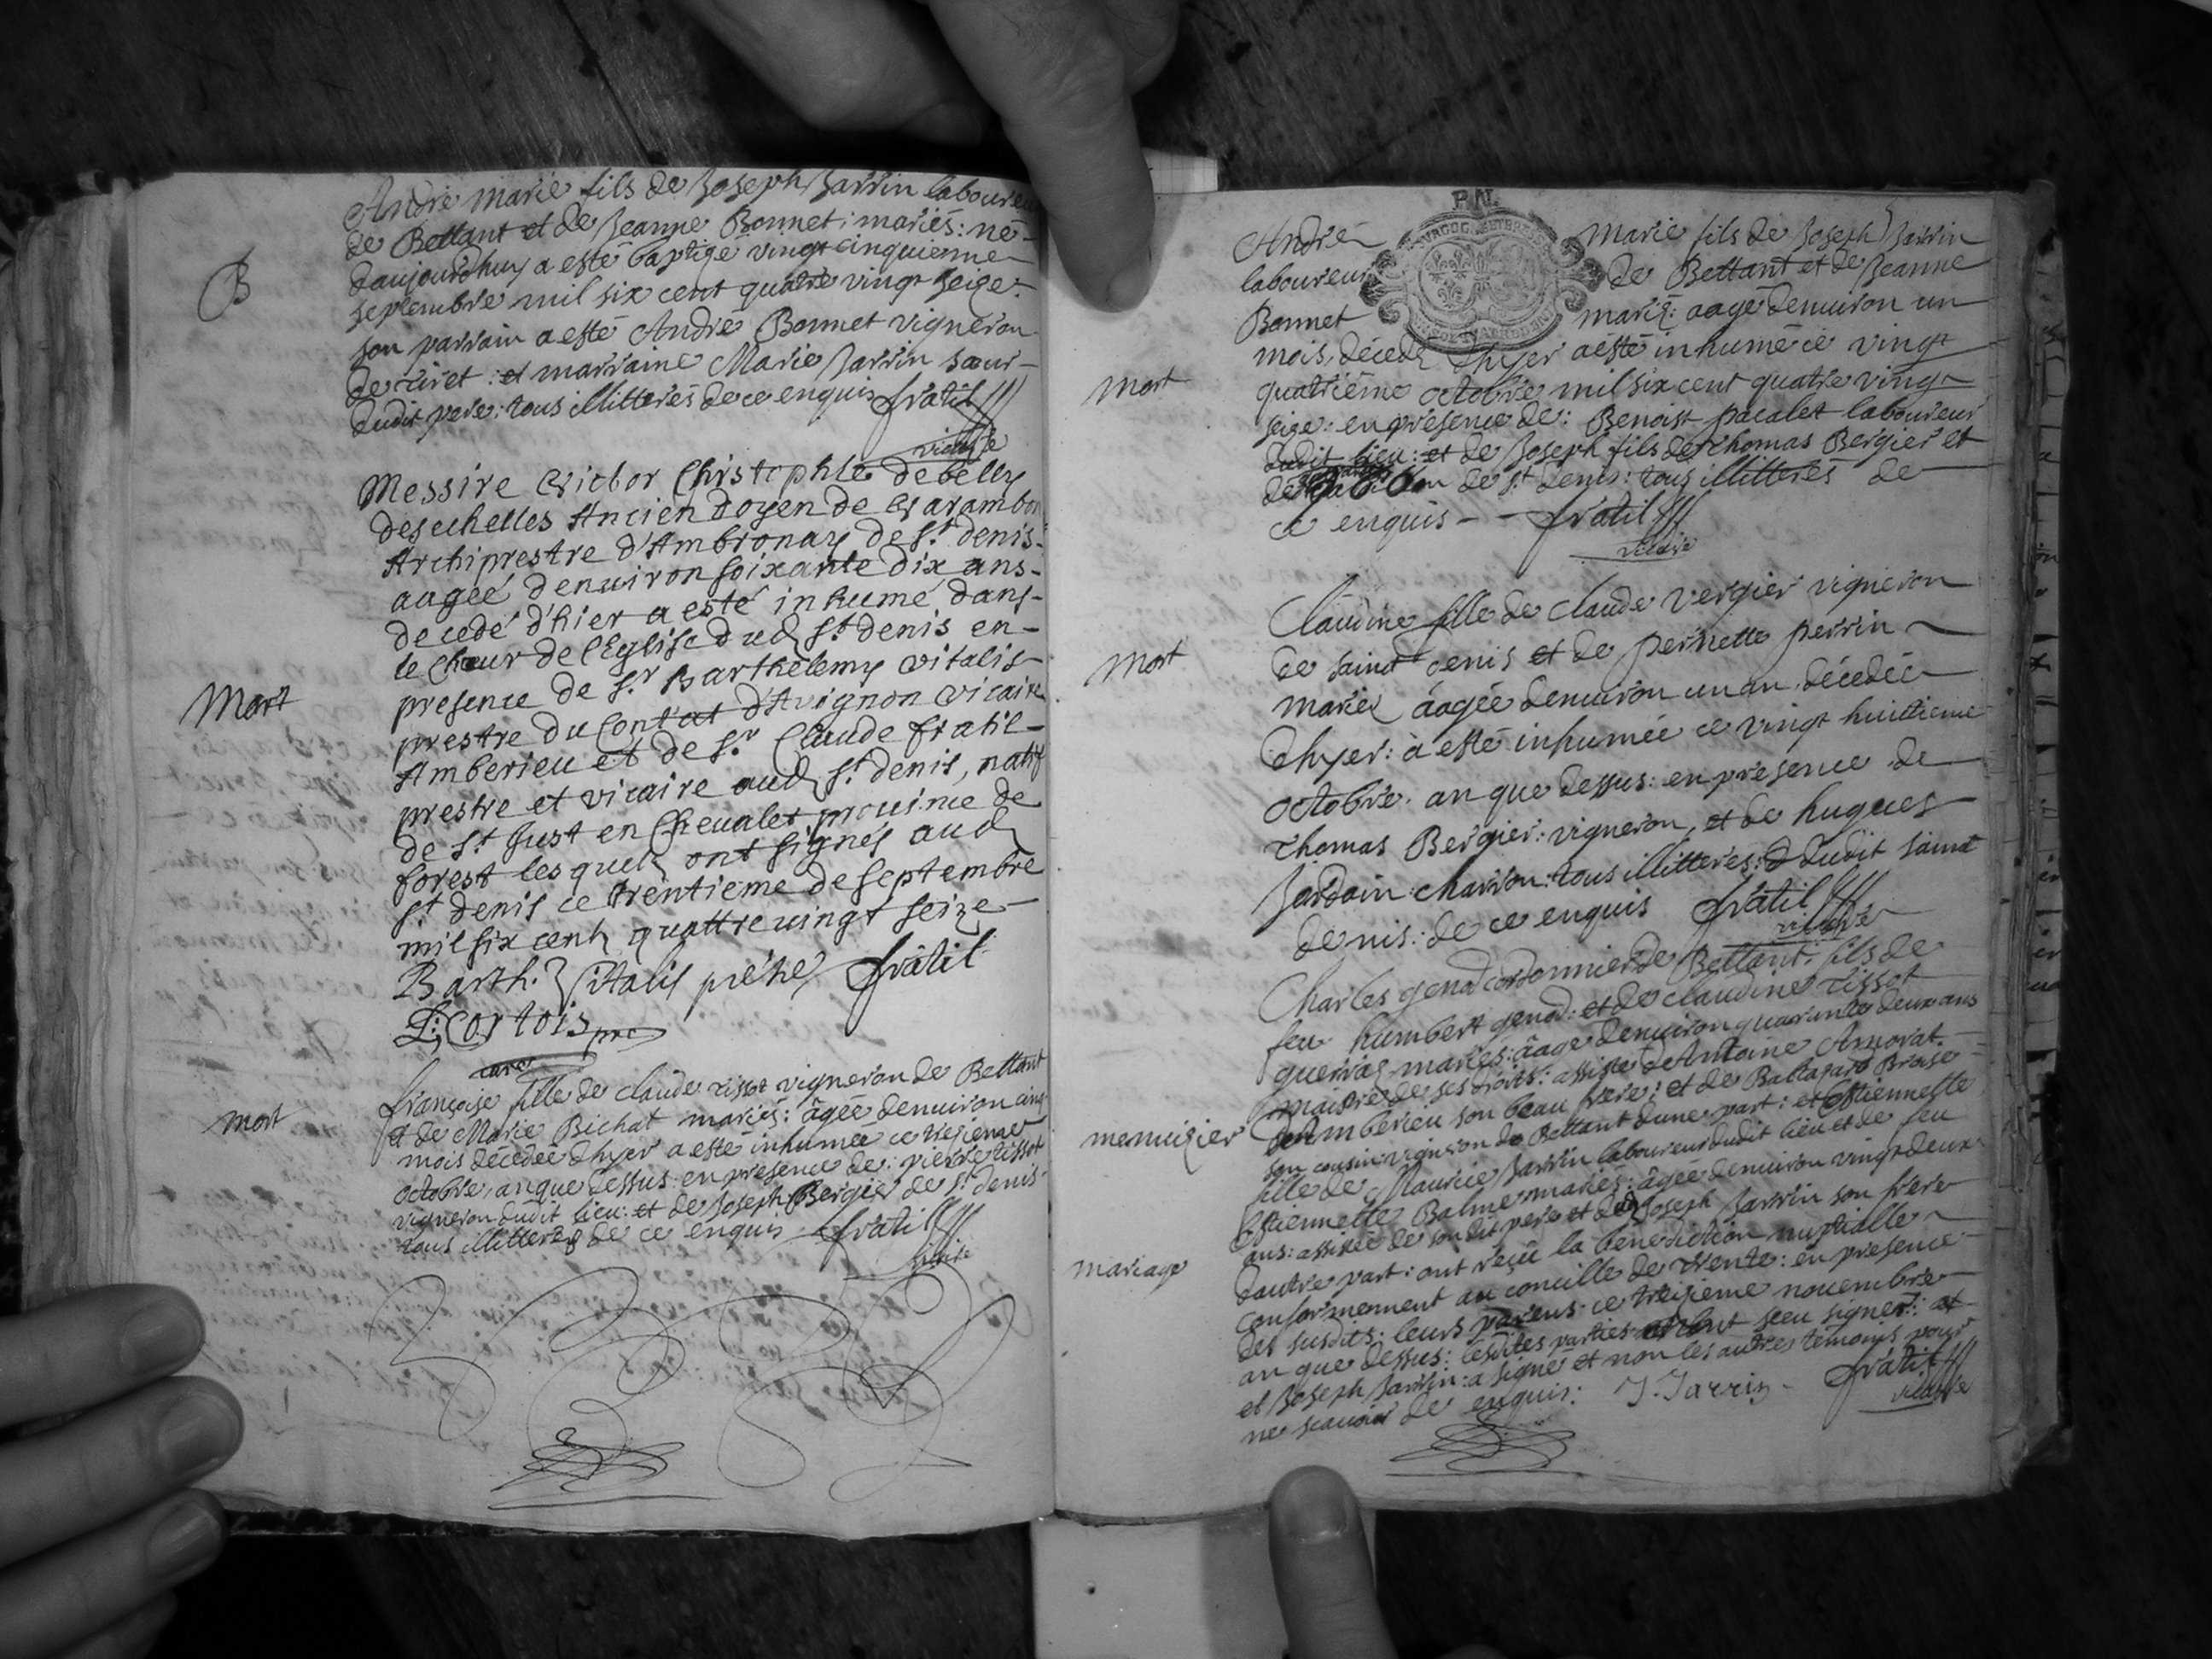 André marie fils de Joseph Jarrin laboureu
de Bettant et de Jeanne Bonnet: mariés: né
daujourdhuy a esté baptizé vingt cinquieme
B
septembre mil six cent quatre vingt seize.
son parrain a esté André Bonnet vigneron
de ciret: et marraine Marie Jarrin sœur
dudit pere: tous illitterés de ce enquis fratil
vicaire
Messire Victor Christophle de belly
desechelles Ancien doyen de Varambon
Archiprestre d'Ambronay de st. denis
aagée denuiron soixante dix ans
decedé d'hier a esté inhumé dans
le chœur de l'Eglise dud st denis en
presence de sr Barthelemy vitalis
Mort
prestre du Contat d'Avignon vicaire
Amberieu et de sr Claude fratil
prestre et vicaire aud st denis, natif
de st Just en Cheualet prouince de
forest lesquels ont signés aud
st denis ce trentieme de septembre
mil six cent quattre uingt seize
Barth. Vitalis prêtre fratil
L. Cortois pre
curé
françoise fille de claude tissot vigneron de Bettant
Mort
et de Marie Bichat mariés: âgée denuiron cinq
mois décedée dhyer a esté inhumée ce tresieme
octobre, an que dessus: en presence de: pierre tissot
vigneron dudit lieu: et de Joseph Bergier de st denis
tous illitterés de ce enquis fratil
vicaire
P.N.
André Marie fils de Joseph Jarrin
laboureur de Bettant et de Jeanne
Bonnet mariés: aagé denuiron un
mois, décedé dhyer a esté inhumé ce vingt
Mort
quatriéme octobre mil six cent quatre vingt
seize: en presence de: Benoist pacalet laboureur
dudit lieu: et de Joseph fils de Thomas Bergier et
de de st denis: tous illitterés de
ce enquis - - fratil
vicaire
Claudine fille de claude vergier vigneron
Mort
de saint denis et de pernette perrin
mariés âagée denuiron un an décedée
dhyer: à esté inhumée ce vingt huitieme
octobre. an que dessus: en presence de
Thomas Bergier: vigneron, et de hugues
Jardain charron: tous illitteres: dudit saint
denis: de ce enquis fratil
vicaire
Charles genod cordonnier de Bettant: fils de
feu humbert genod: et de claudine tissot
mariés: âagé denuiron quarante deux ans
maistre de ses droits: assisté de Antoine Amorat
menuizier
d'Amberieu son beau frere: et de Baltazard Braise
son cousin vigneron de Bettant dune part: et Estiennette
fille de Maurice Jarrin laboureur dudit lieu et de feu
Estiennette Balme mariés: âgée denuiron vingt deux
ans: assistée de son dit pere et de Joseph Jarrin son frere
mariage
dautre part: ont reçu la benediction nuptialle
conformement au concille de trente: en presence
des susdits: leurs parens: ce treizieme nouembre
an que dessus: lesdites parties sceu signer: et
et Joseph Jarrin: a signé et non les autres témoins pour
ne scauoir de enquis: J. Jarrin fratil
vicaire